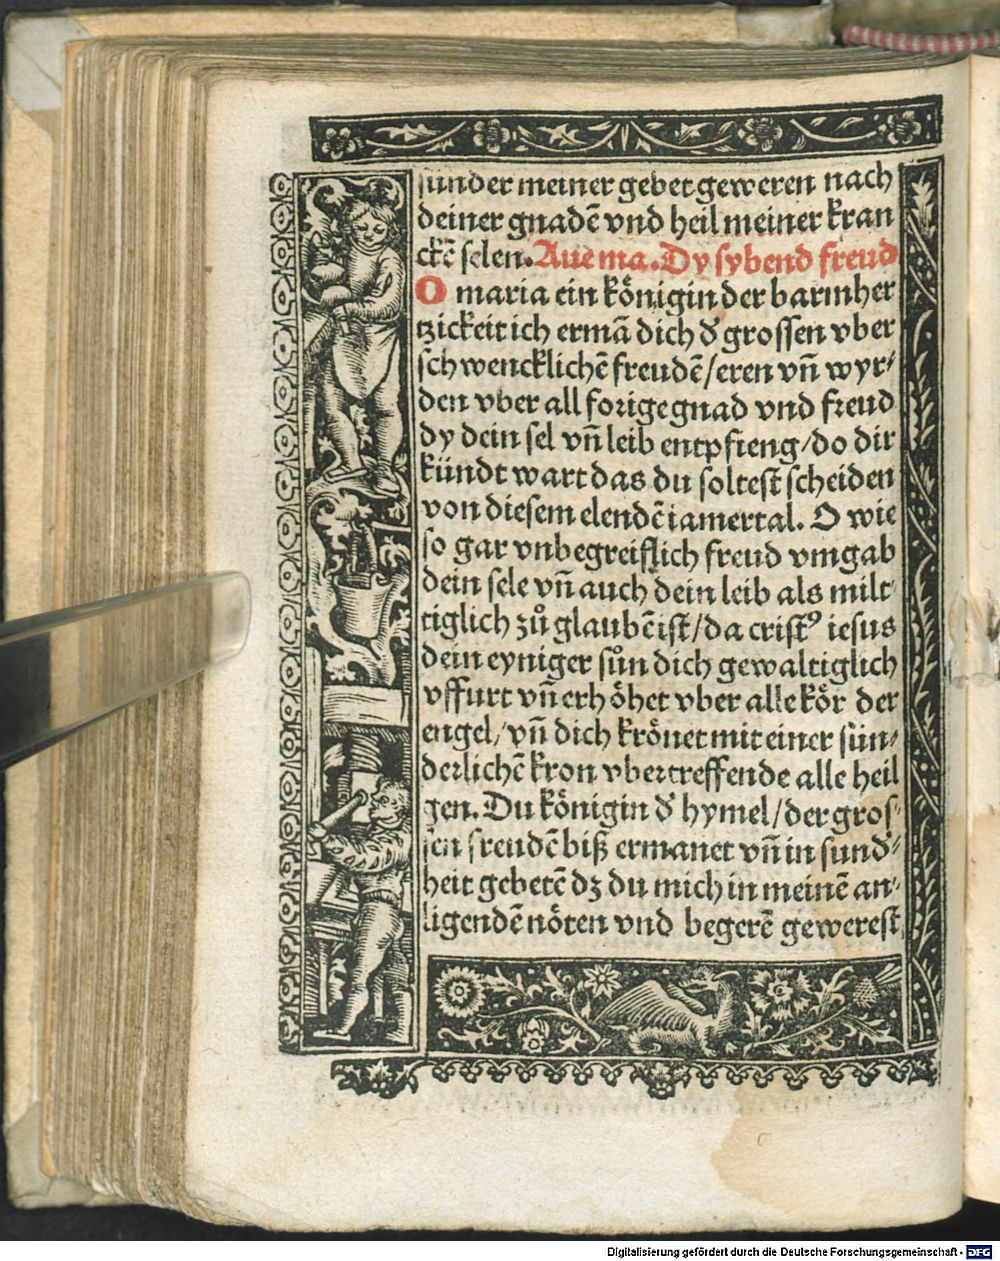 sunder meiner gebet geweren nach
deiner gnadē vnd heil meiner kran
ckē selen. Aue ma. Dy sybend freud
O maria ein königin der barmher
tzickeit ich ermā dich đ grossen vber
schwencklichē freudē/eren vn̄ wyr⸗
den vber all forige gnad vnd freud
dy dein sel vn̄ leib entpfieng/do dir
kündt wart das du soltest scheiden
von diesem elendē iamertal. O wie
so gar vnbegreiflich freud vmgab
dein sele vn̄ auch dein leib als milt⸗
tiglich zů glaubē ist/da cristꝰ iesus
dein eyniger sůn dich gewaltiglich
vffurt vn̄ erhöhet vber alle kör der
engel/vn̄ dich krönet mit einer sün⸗
derlichē kron vbertreffende alle heil
gen. Du königin đ hymel/der gros⸗
sen freudē biß ermanet vn̄ in sund⸗
heit gebetē dz du mich in meinē an⸗
ligendē nöten vnd begerē gewerest
Digitalisierung gefördert durch die Deutsche Forschungsgemeinschaft - DFG